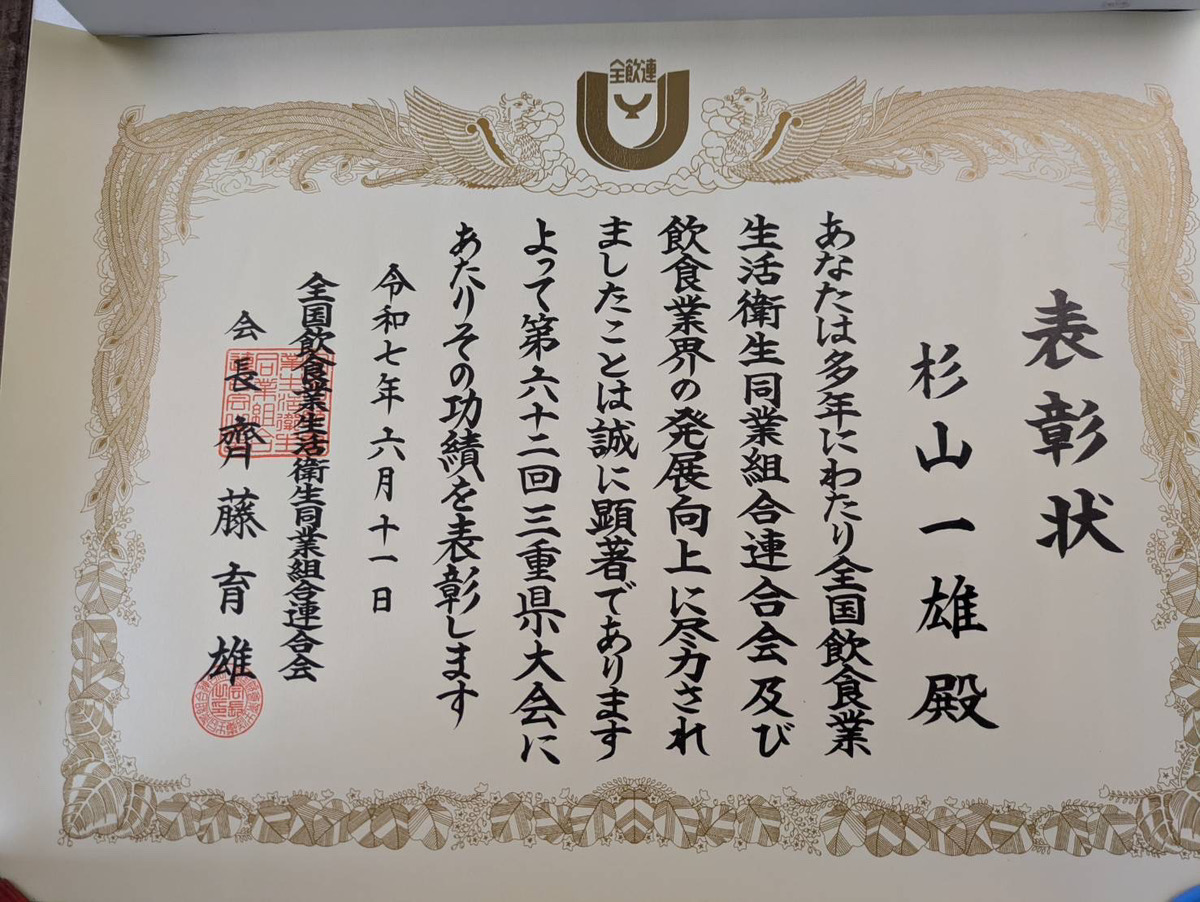 全飲連
表彰状
杉山一雄殿
あなたは多年にわたり全国飲食業
生活衛生同業組合連合会及び
飲食業界の発展向上に尽力され
ましたことは誠に顕著であります
よって第六十二回三重県大会に
あたりその功績を表彰します
令和七年六月十一日
全国飲食業生活衛生同業組合連合会
会長齊藤育雄